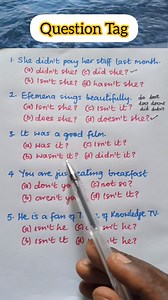 Question Tag
1. She didn't pay her staff last month.
(a) didn't she? (c) did she? ✓
(b) Isn't she? (d) hasn't she?
2. Efemena sings beautifully.
(a) Isn't she? (c) Isn't it?
(b) does she? (d) doesn't she? ✓
3. It was a good film.
(a) was it? (c) Isn't it?
(b) wasn't it? (d) didn't it?
4. You are just eating breakfast
(a) don't you (c) not so?
(b) aren't (d) Isn't it?
5. He is a fan of Knowledge TV.
(a) isn't he (c) Isn't he?
(b) isn't it he?